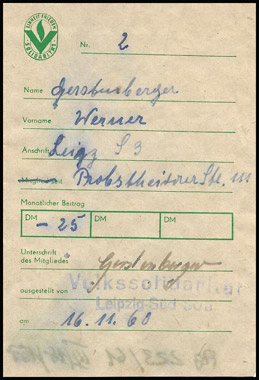 EINHEIT FRIEDEN
SOLIDARITÄT
Nr. 2
Name Gerstenberger
Vorname Werner
Anschrift Leipzg S 3
Mitglied seit Probstheidaer Str. 111
Monatlicher Beitrag
DM DM DM
-25
Unterschrift
des Mitgliedes Gerstenberger
Volkssolidarität
ausgestellt von Leipzig-Süd
am 16.11.60